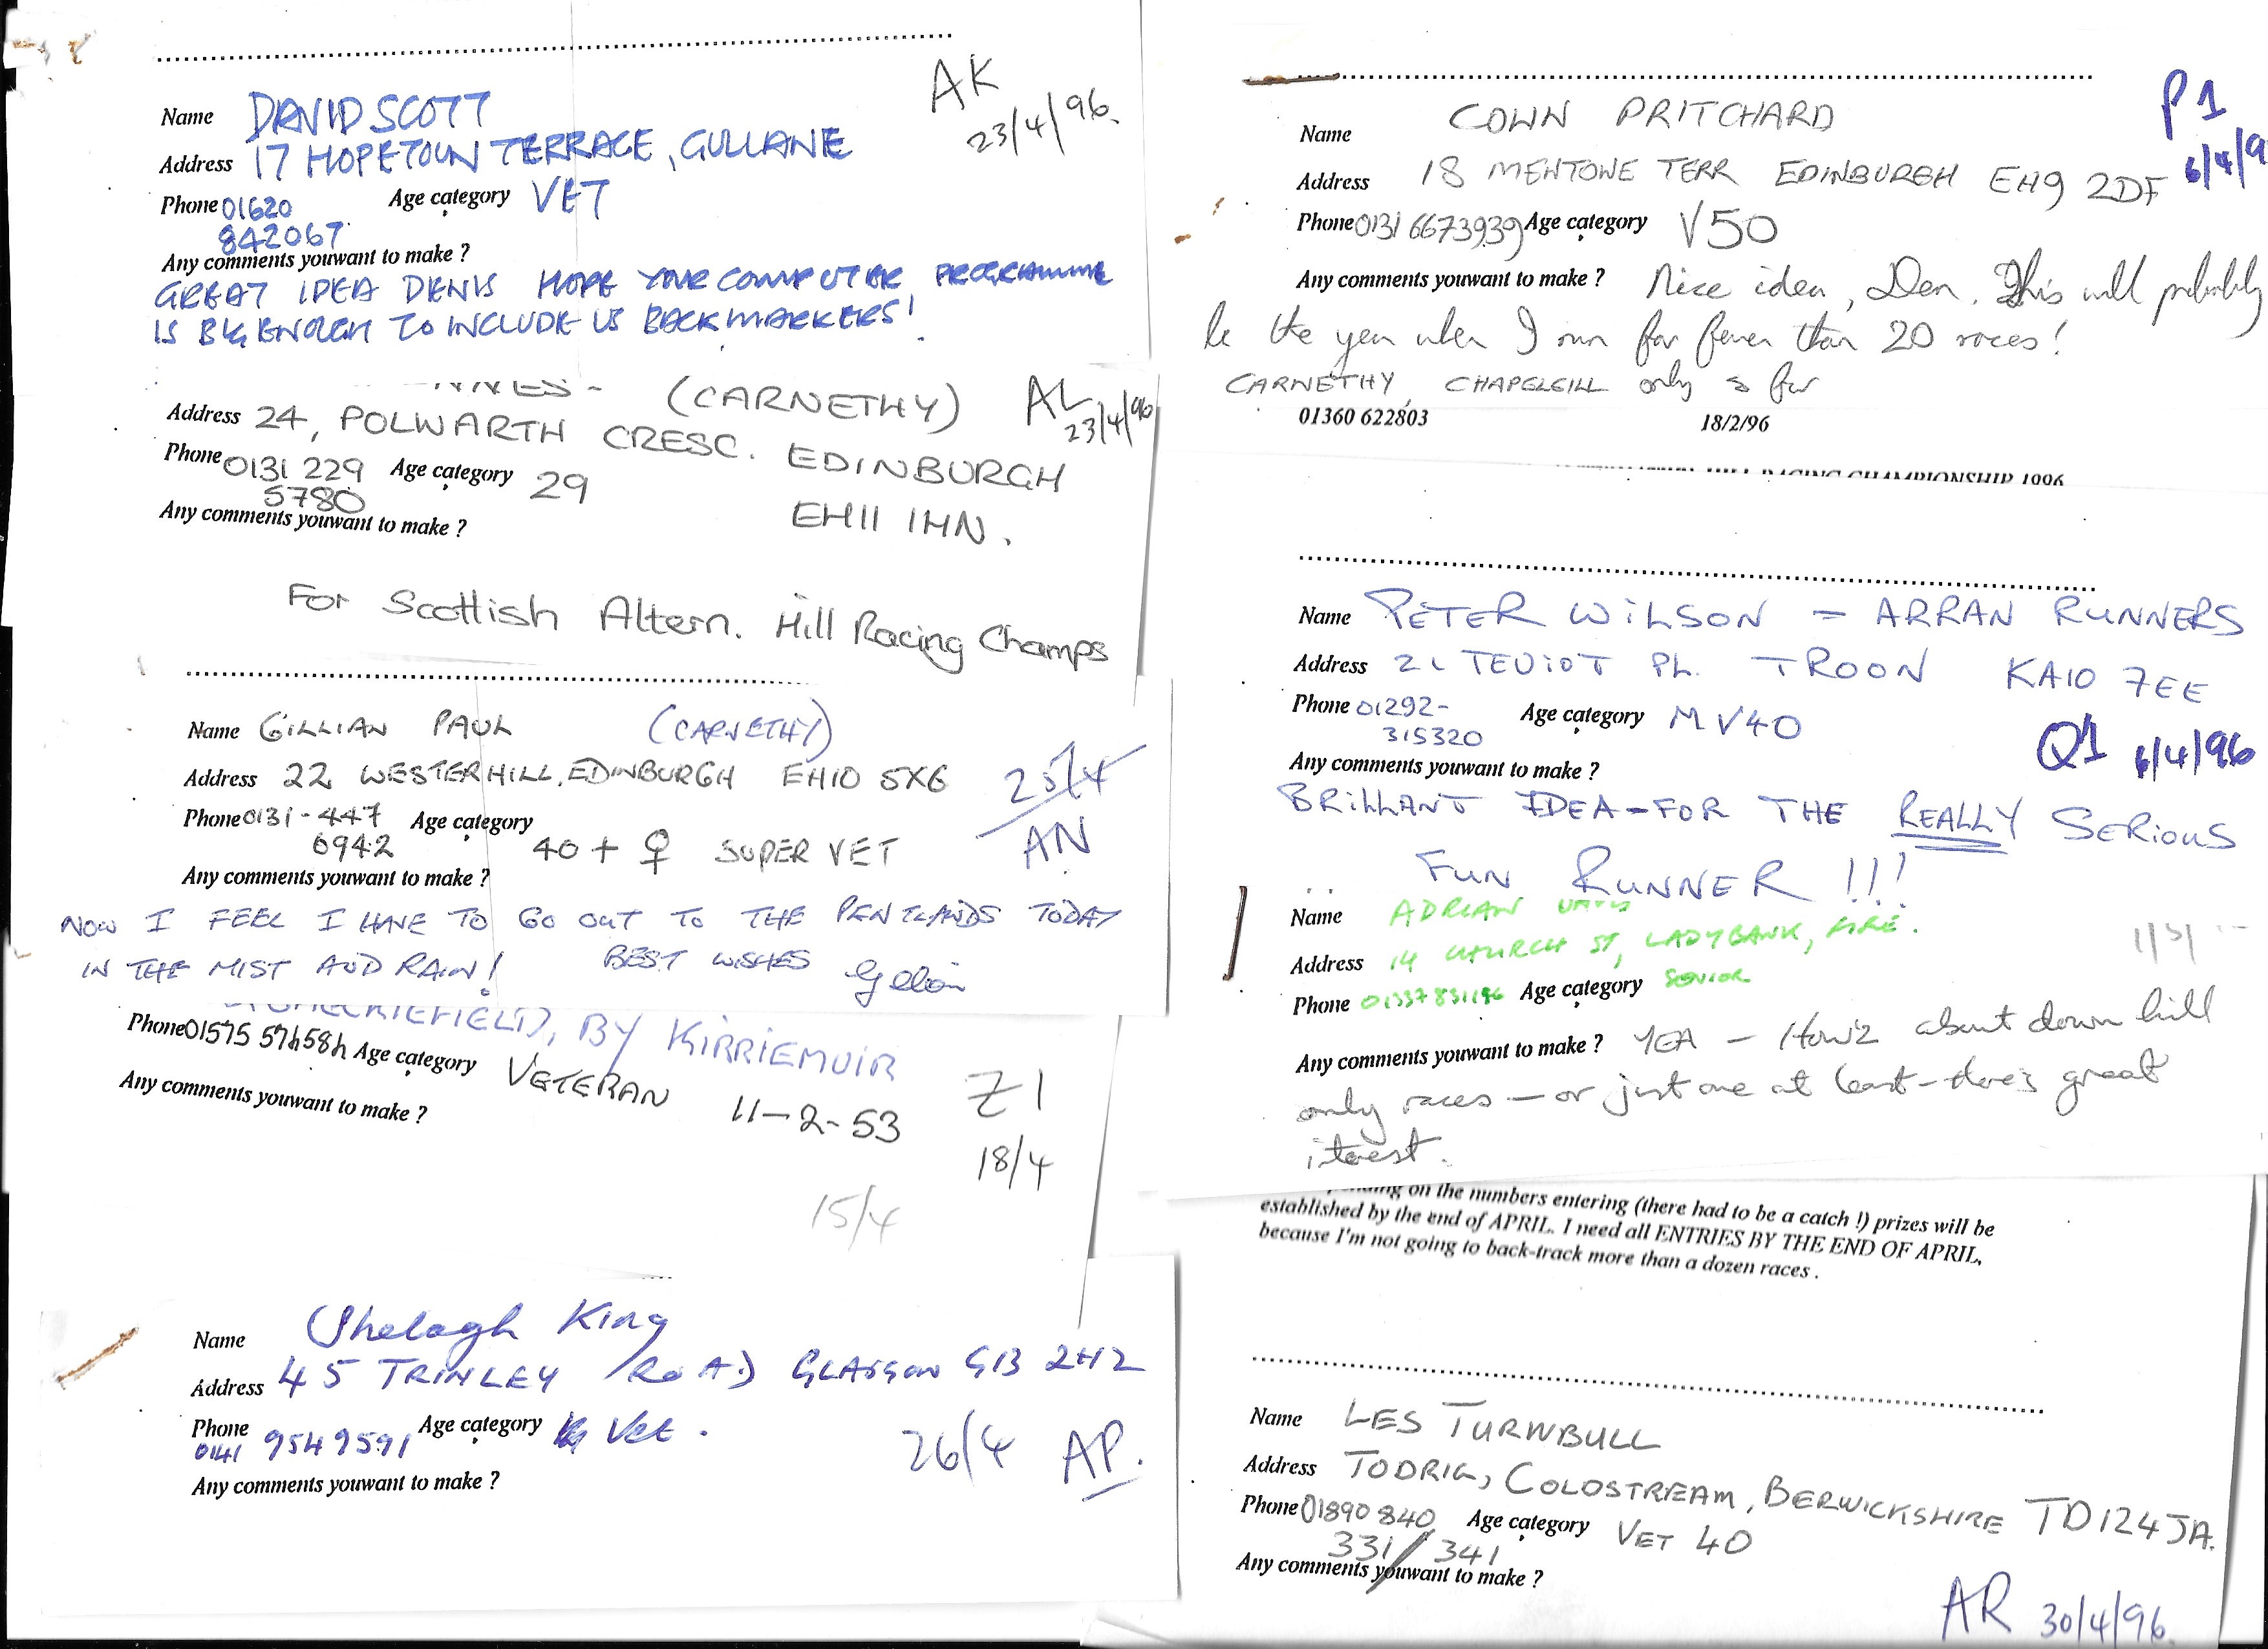 Name DAVID SCOTT
AK
23/4/96.
Address 17 HOPETOUN TERRACE, GULLANE
Phone 01620 Age category VET
842067
Any comments youwant to make ?
GREAT IDEA DENIS HOPE YOUR COMPUTER PROGRAMME
IS BIG ENOUGH TO INCLUDE US BACKMARKERS!
(CARNETHY)
AL
23/4/96
Address 24, POLWARTH CRESC. EDINBURGH
Phone 0131 229 Age category 29
5780
EH11 1HN.
Any comments youwant to make ?
For Scottish Altern. Hill Racing Champs
Name GILLIAN PAUL (CARNETHY)
Address 22 WESTERHILL, EDINBURGH EH10 5XG
25/4
AN
Phone 0131-447 Age category
6942
40+ ♀ SUPER VET
Any comments youwant to make ?
NOW I FEEL I HAVE TO GO OUT TO THE PENTLANDS TODAY
IN THE MIST AND RAIN! BEST WISHES
BY KIRRIEMUIR
Phone 01575 574584 Age category VETERAN 11-2-53
Any comments youwant to make ?
Z1
18/4
15/4
Name Shelagh King
Address 45 TRINLEY ROAD GLASGOW G13 2HZ
Phone 0141 9549591 Age category Vet.
26/4 AP.
Any comments youwant to make ?
P1
6/4/9
Name COLIN PRITCHARD
Address 18 MENTONE TERR EDINBURGH EH9 2DF
Phone 0131 6673939 Age category V50
Any comments youwant to make ? Nice idea, Den. This will probably
be the year when I run far fewer than 20 races!
CARNETHY, CHAPELGILL only so far
01360 622803 18/2/96
HILL RACING CHAMPIONSHIP 1996
Name PETER WILSON - ARRAN RUNNERS
Address 21 TEVIOT PL. TROON KA10 7EE
Phone 01292- Age category MV40
315320
Q1 6/4/96
Any comments youwant to make ?
BRILLANT IDEA-FOR THE REALLY SERIOUS
FUN RUNNER !!!
Name ADRIAN
Address 14 CHURCH ST, LADYBANK, FIFE.
Phone 01337 831196 Age category SENIOR
Any comments youwant to make ? YEA - How's about down hill
only races - or just one at least - there's great
iterest.
on the numbers entering (there had to be a catch !) prizes will be
established by the end of APRIL. I need all ENTRIES BY THE END OF APRIL,
because I'm not going to back-track more than a dozen races .
Name LES TURNBULL
Address TODRIG, COLDSTREAM, BERWICKSHIRE TD12 4JA.
Phone 01890 840 Age category VET 40
331/341
Any comments youwant to make ?
AR 30/4/96.